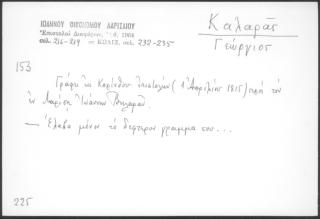 ΙΩΑΝΝΟΥ ΟΙΚΟΝΟΜΟΥ ΛΑΡΙΣΑΙΟΥ
Ἐπιστολαὶ Διαφόρων, 1964
σελ. 216-219 σελ. 232-235
Καλαρᾶς
Γεώργιος
153
Γράφει ἐκ Κορίνθου ἐπιστολὴν (1 Ἀπριλίου 1815) πρὸς τὸν
ἐν Λαρίσῃ Ἰωάννην
— Ἔλαβα μόνον τὸ δεύτερον γράμμα του...
225